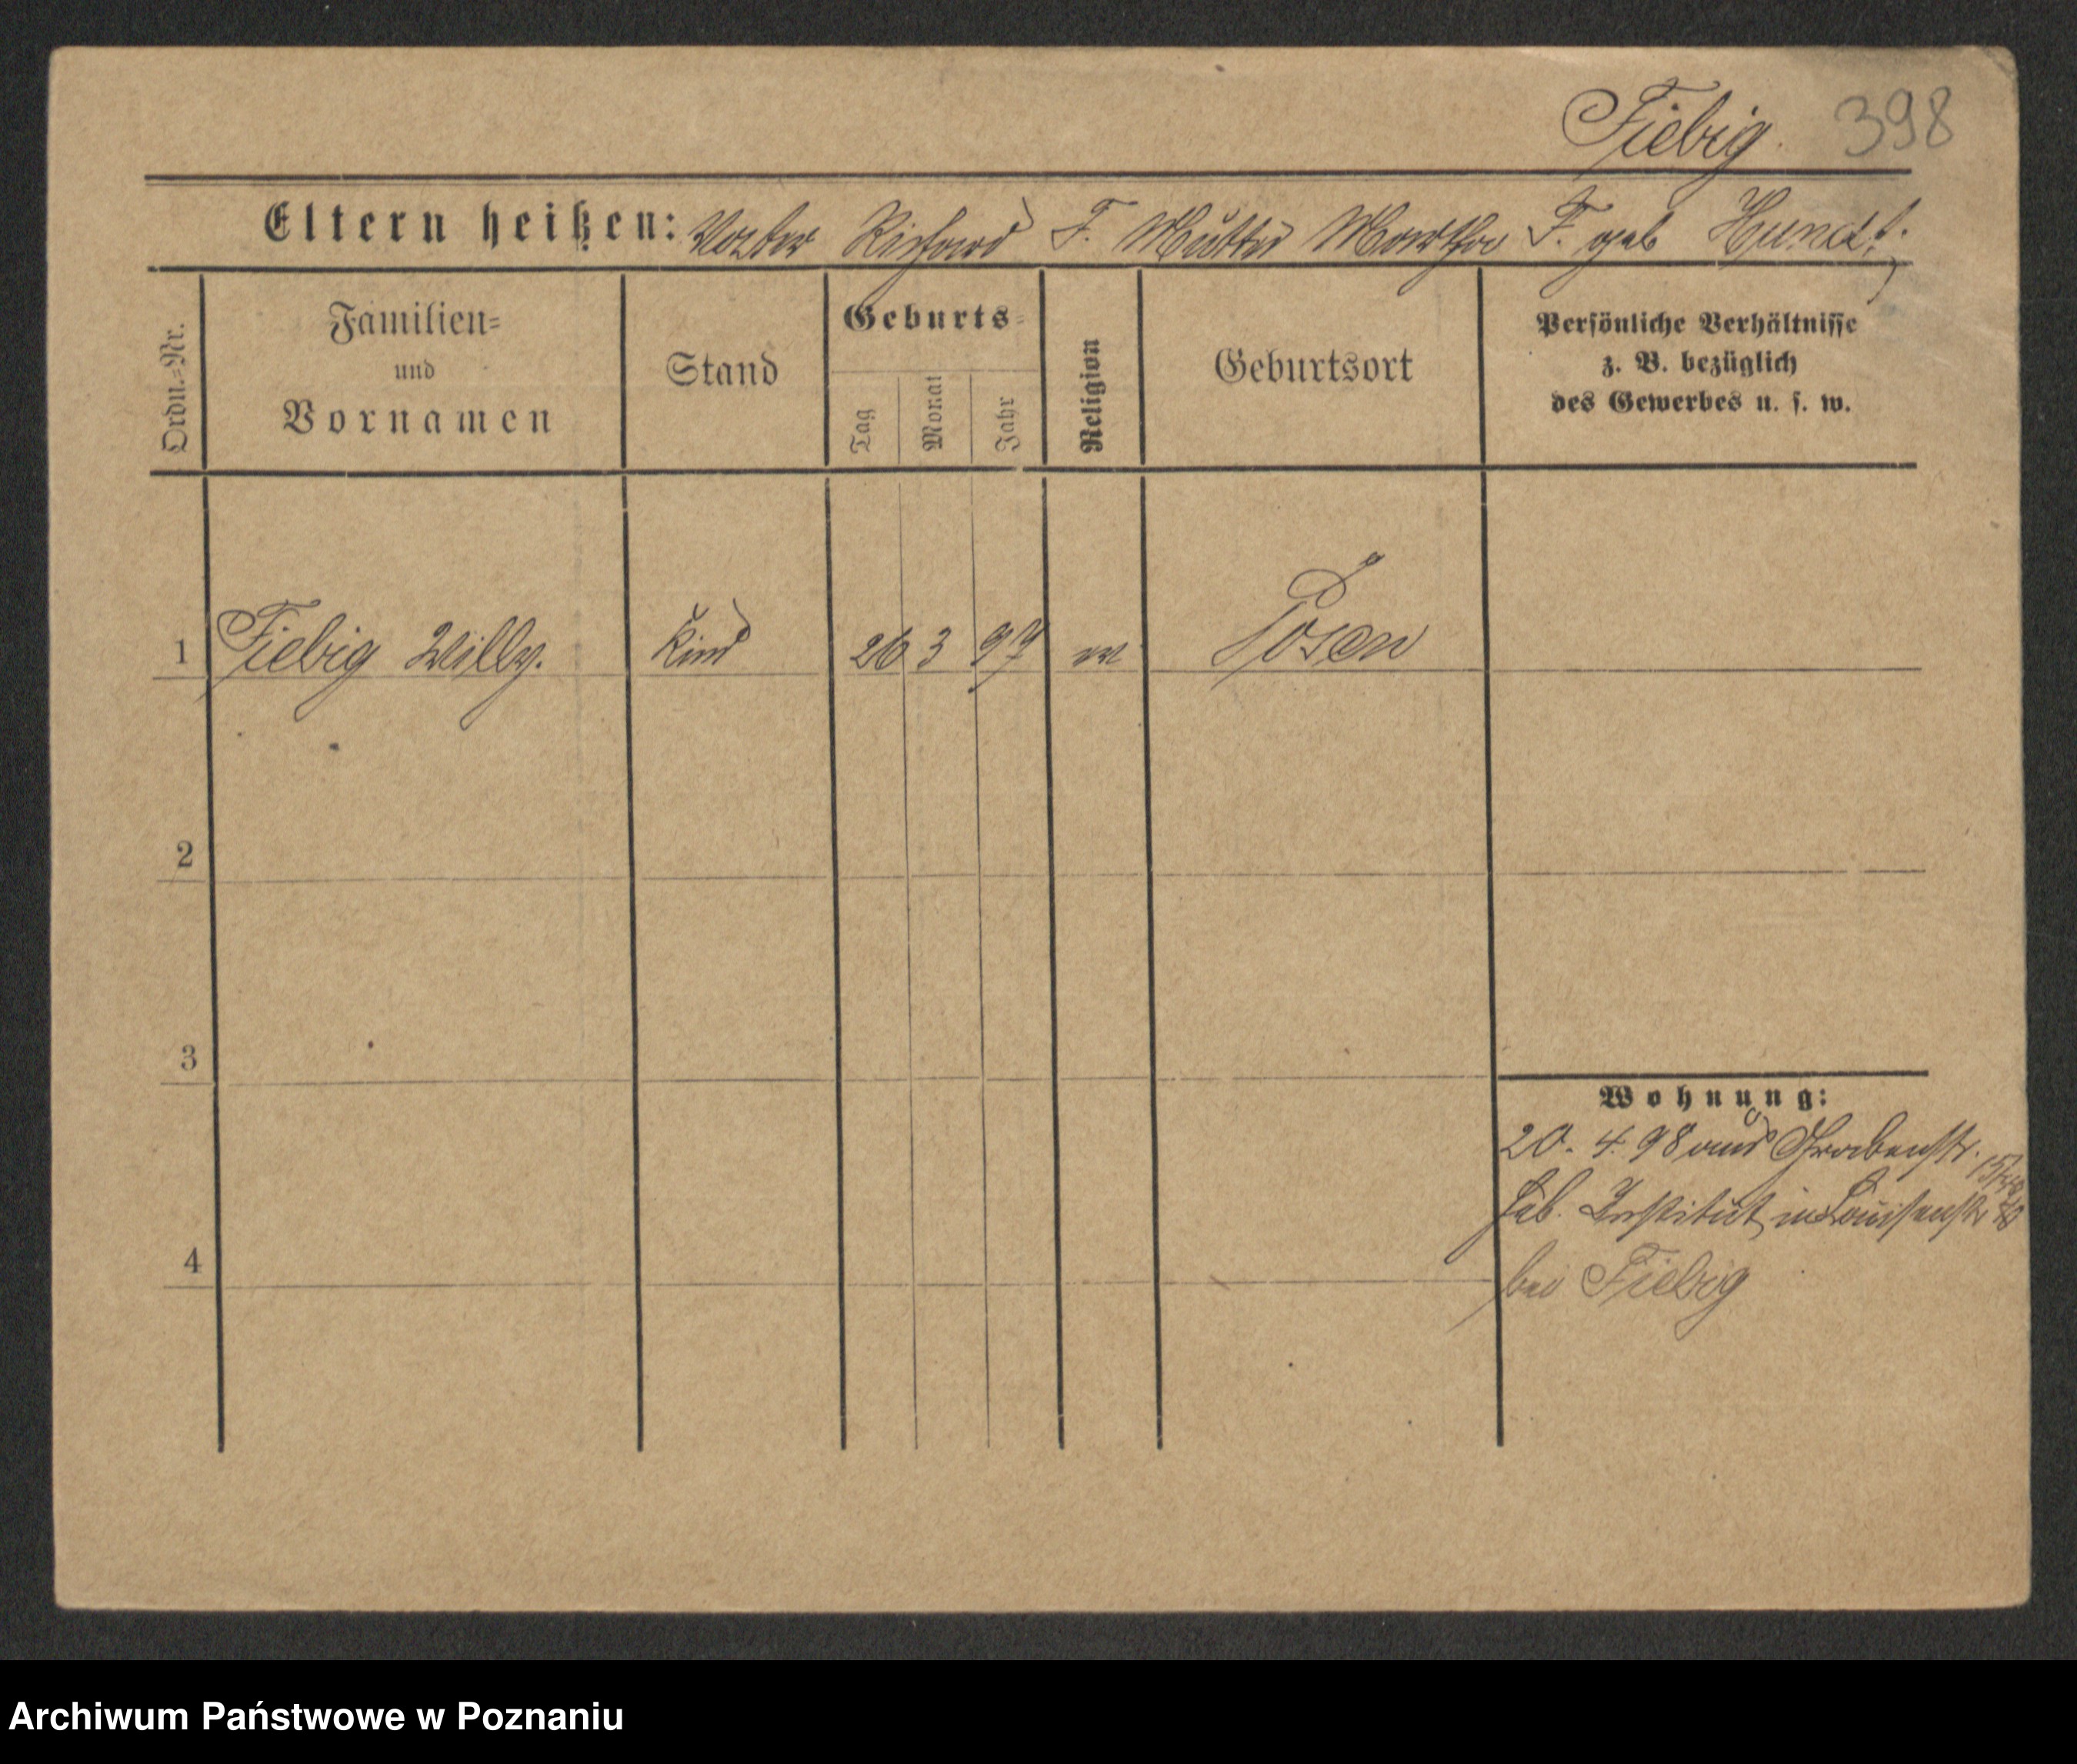 Fiebig. 398
Eltern heißen: Vater Richard F. Mutter Martha F. geb Hundt.
Ordn.=Nr.
Familien=
und
Vornamen
Stand
Geburts=
Tag
Monat
Jahr
Religion
Geburtsort
Persönliche Verhältnisse
z. B. bezüglich
des Gewerbes u. s. w.
1 Fiebig Willy. Kind 26 3 97 Posen
2
3
4
Wohnung:
20. 4. 98 aus Grabenstr.
Heb. Institut in Louisenstr
bei Fiebig
Archiwum Państwowe w Poznaniu